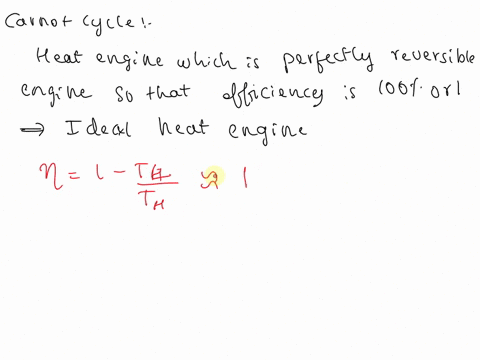 Carnot cycle :-
Heat engine which is perfectly reversible
engine so that efficiency is 100% or 1
⇒ Ideal heat engine
η = 1 - T_L/T_H ≈ 1